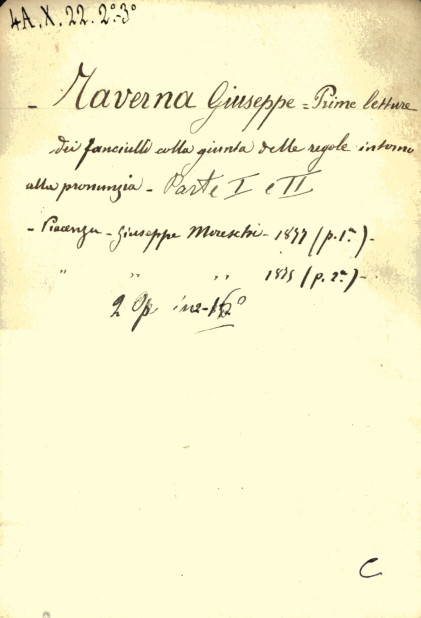 4A.X.22. 2º-3º
- Taverna Giuseppe = Prime letture
dei fanciulli colla giunta delle regole intorno
alla pronunzia - Parte I e II
- Piacenza - Giuseppe Moreschi - 1837 (p. 1ª) -
" " " 1835 (p. 2ª) -
2 Op in
C